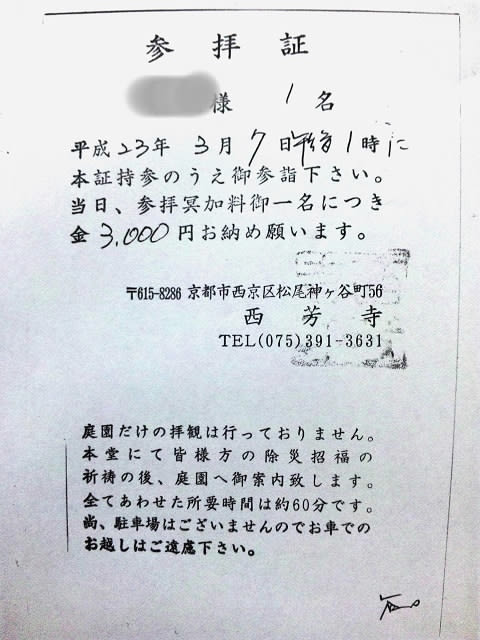 参拝証
様 1名
平成23年3月7日午後1時に
本証持参のうえ御参詣下さい。
当日、参拝冥加料御一名につき
金3,000円お納め願います。
〒615-8286 京都市西京区松尾神ヶ谷町56
西芳寺
TEL(075)391-3631
庭園だけの拝観は行っておりません。
本堂にて皆様方の除災招福の
祈祷の後、庭園へ御案内致します。
全てあわせた所要時間は約60分です。
尚、駐車場はございませんのでお車での
お越しはご遠慮下さい。